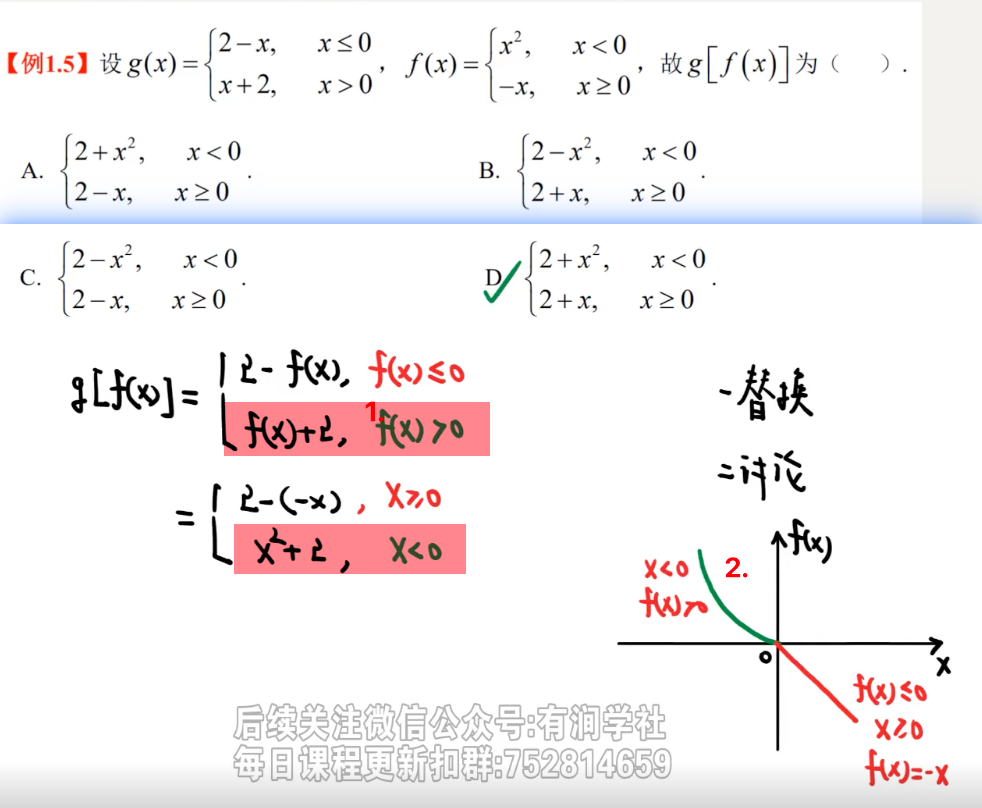 【例1.5】设 g(x) = { 2-x, x≤0
x+2, x>0 , f(x) = { x², x<0
-x, x≥0 , 故 g[f(x)] 为（ ）.
A. { 2+x², x<0
2-x, x≥0 .
B. { 2-x², x<0
2+x, x≥0 .
C. { 2-x², x<0
2-x, x≥0 .
D. { 2+x², x<0
2+x, x≥0 .
g[f(x)] = { 2-f(x), f(x)≤0
1.
f(x)+2, f(x)>0
= { 2-(-x), x≥0
x²+2, x<0
一替换
二讨论
f(x)
x<0
2.
f(x)>0
0
x
f(x)≤0
x≥0
f(x)=-x
后续关注微信公众号:有润学社
每日课程更新扣群:752814659